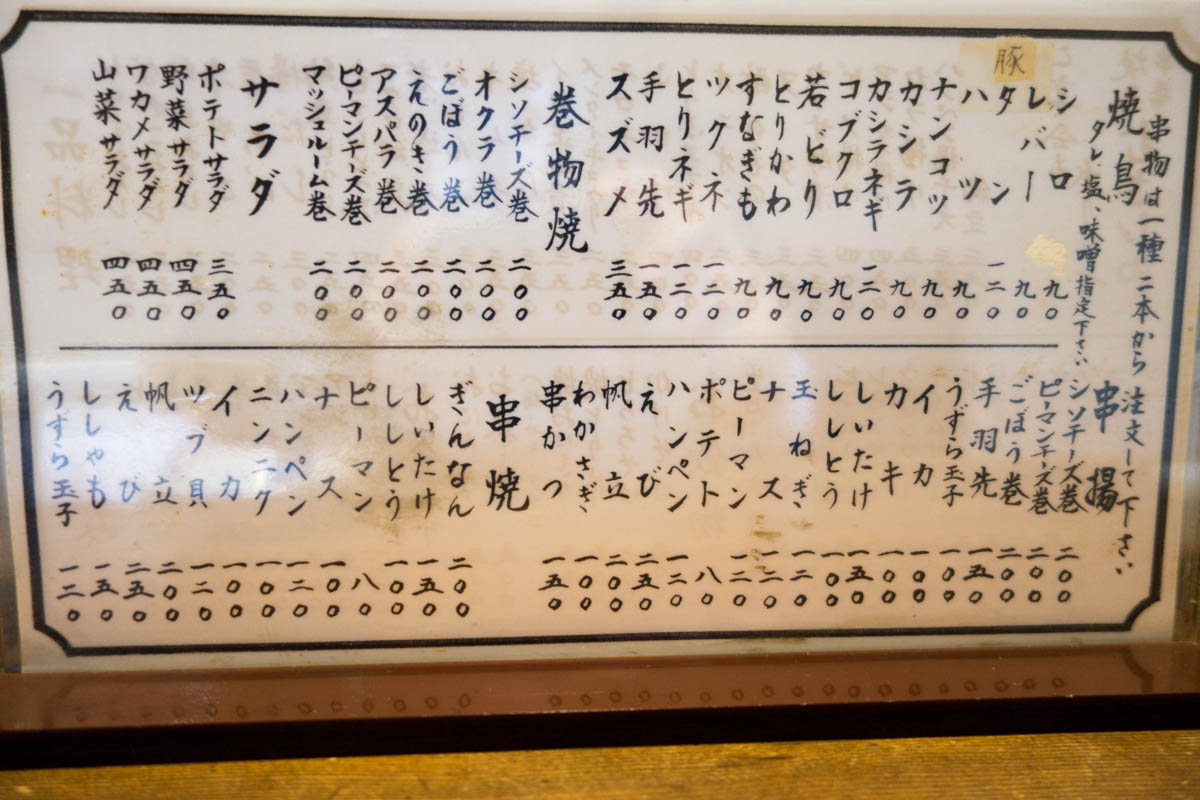 串物は一種二本から注文して下さい
焼鳥
タレ、塩、味噌指定下さい
豚
シロ 九〇
レバー 九〇
タン 一二〇
ハツ 九〇
ナンコツ 九〇
カシラ 九〇
カシラネギ 一二〇
コブクロ 九〇
若どり 九〇
とりかわ 九〇
すなぎも 九〇
ツクネ 一二〇
とりネギ 一二〇
手羽先 一五〇
スズメ 三五〇
巻物焼
シソチーズ巻 二〇〇
オクラ巻 二〇〇
ごぼう巻 二〇〇
えのき巻 二〇〇
アスパラ巻 二〇〇
ピーマンチーズ巻 二〇〇
マッシュルーム巻 二〇〇
サラダ
ポテトサラダ 三五〇
野菜サラダ 四五〇
ワカメサラダ 四五〇
山菜サラダ 四五〇
串揚
シソチーズ巻 二〇〇
ピーマンチーズ巻 二〇〇
ごぼう巻 二〇〇
手羽先 一五〇
うずら玉子 一〇〇
イカ 一〇〇
カキ 一〇〇
しいたけ 一五〇
ししとう 一〇〇
玉ねぎ 一二〇
ナス 一二〇
ピーマン 一二〇
ポテト 八〇
ハンペン 一二〇
えび 二五〇
帆立 二〇〇
わかさぎ 一〇〇
串かつ 一五〇
串焼
ぎんなん 二〇〇
しいたけ 一五〇
ししとう 一〇〇
ピーマン 八〇
ナス 一〇〇
ハンペン 一二〇
ニンニク 一〇〇
イカ 一〇〇
ツブ貝 一二〇
帆立 二〇〇
えび 二五〇
ししゃも 一五〇
うずら玉子 一二〇